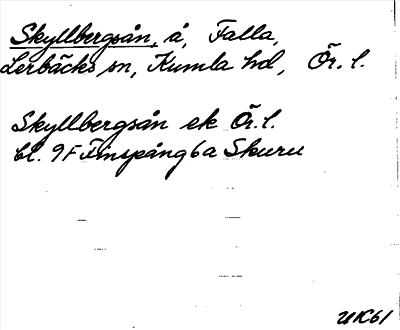 Skyllbergsån, å, Falla,
Lerbäcks sn, Kumla hd, Ör. l.
Skyllbergsån ek Ör. l.
bl. 9F Finspång 6a Skuru
UK61